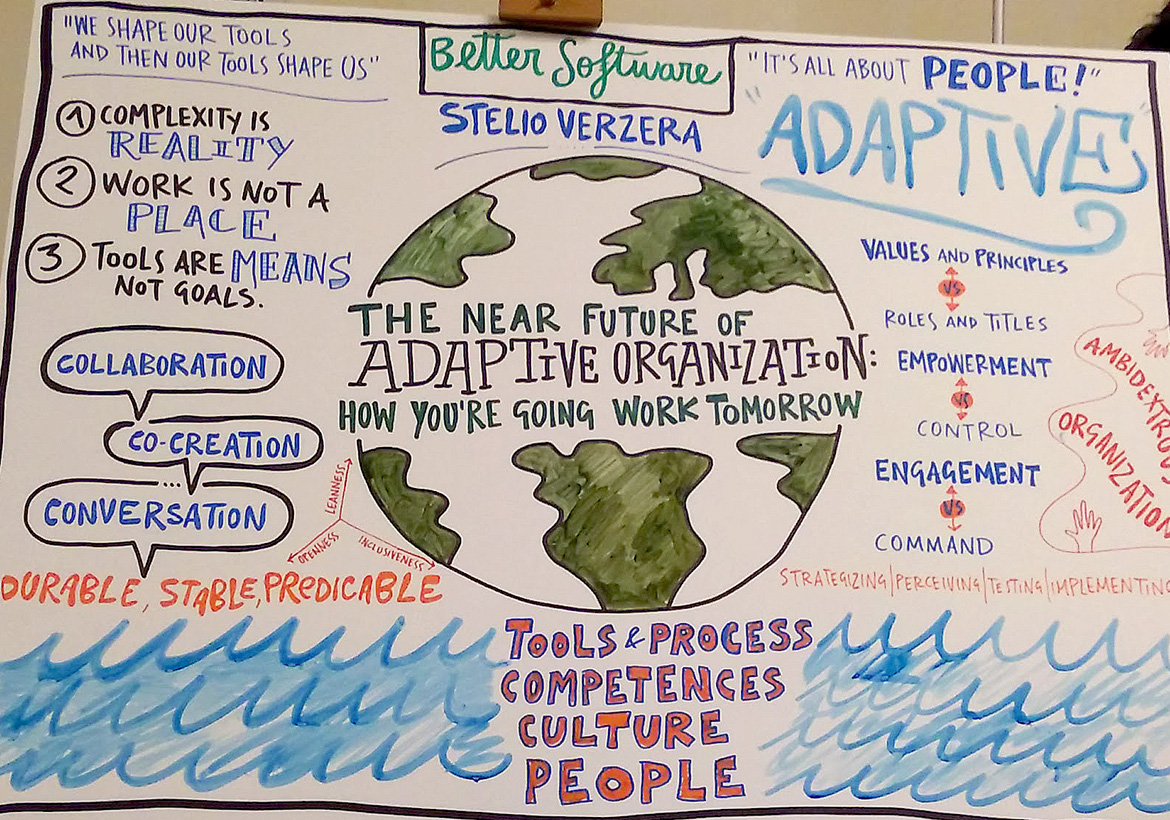 "WE SHAPE OUR TOOLS
AND THEN OUR TOOLS SHAPE US"
① COMPLEXITY IS
REALITY
② WORK IS NOT A
PLACE
③ TOOLS ARE MEANS
NOT GOALS.
COLLABORATION
CO-CREATION
...
CONVERSATION
LEANNESS
OPENNESS
INCLUSIVENESS
DURABLE, STABLE, PREDICABLE
Better Software
STELIO VERZERA
THE NEAR FUTURE OF
ADAPTIVE ORGANIZATION:
HOW YOU'RE GOING WORK TOMORROW
"IT'S ALL ABOUT PEOPLE!"
"ADAPTIVE"
VALUES AND PRINCIPLES
VS
ROLES AND TITLES
EMPOWERMENT
VS
CONTROL
ENGAGEMENT
VS
COMMAND
AMBIDEXTROUS
ORGANIZATION
STRATEGIZING|PERCEIVING|TESTING|IMPLEMENTING
TOOLS & PROCESS
COMPETENCES
CULTURE
PEOPLE